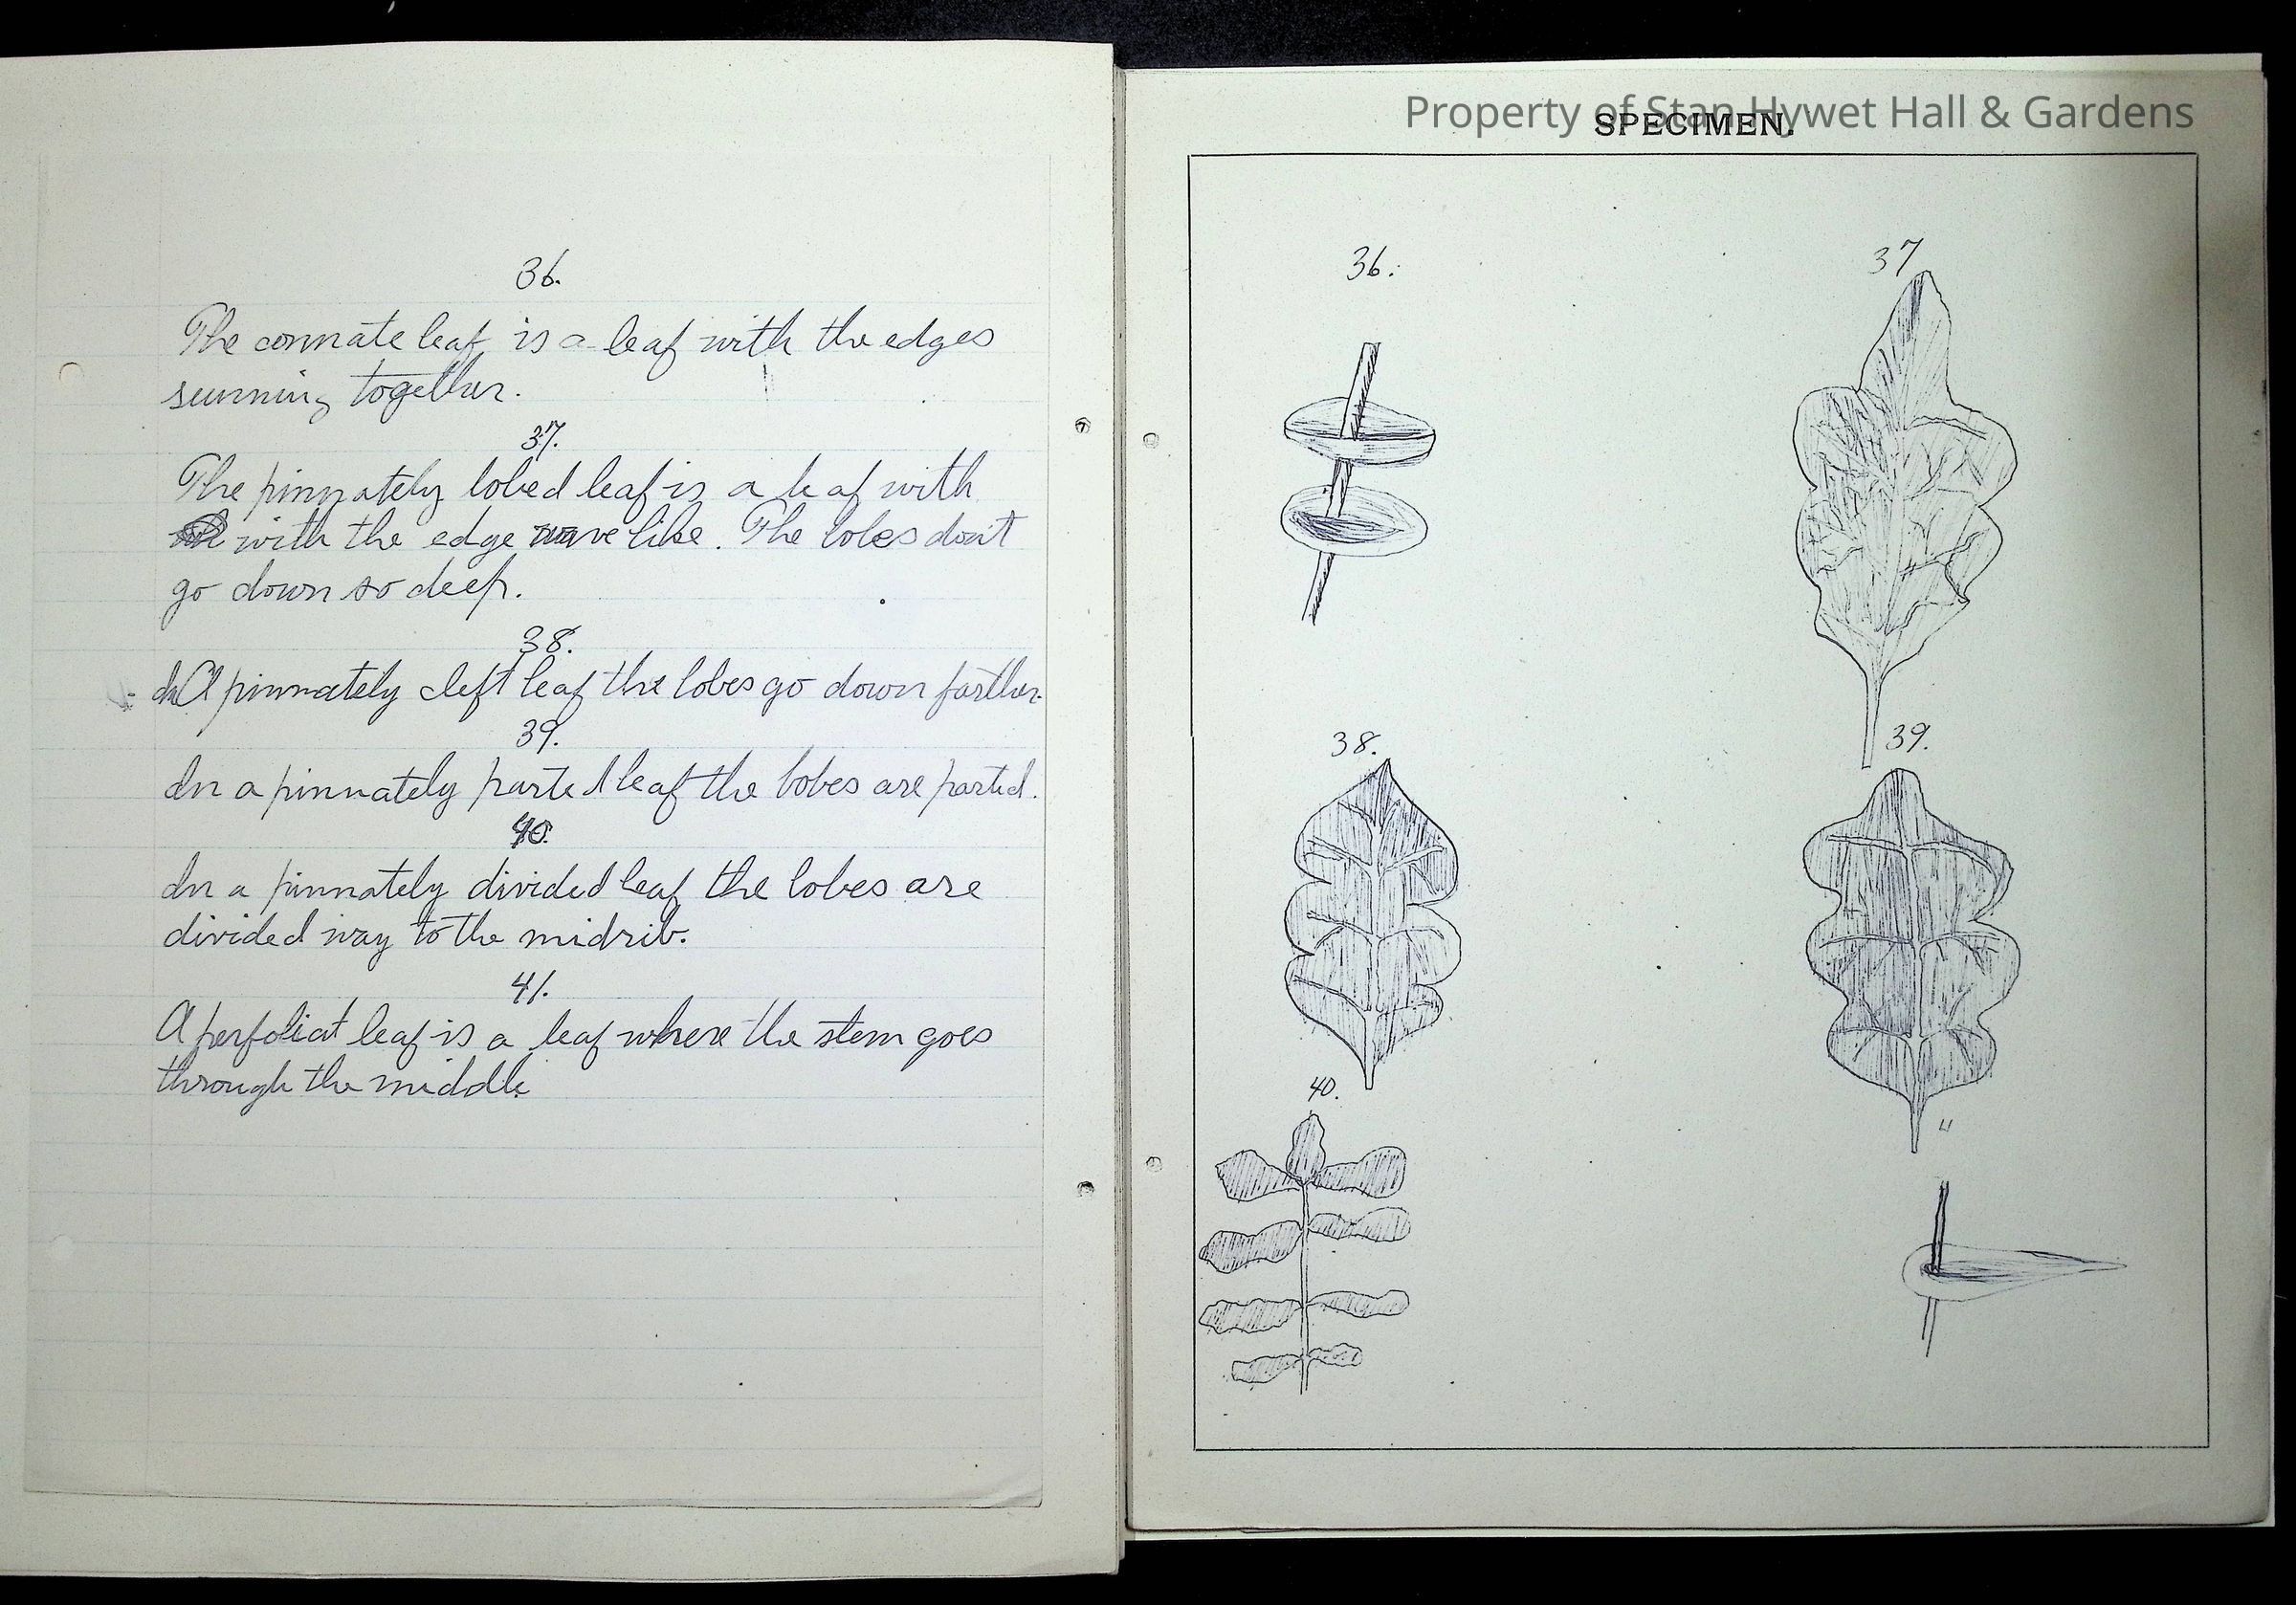 36.
The connate leaf is a leaf with the edges
running together.
37.
The pinnately lobed leaf is a leaf with
with the edge wave like. The lobes don't
go down so deep.
38.
In A pinnately cleft leaf the lobes go down farther.
39.
In a pinnately parted leaf the lobes are parted.
40.
In a pinnately divided leaf the lobes are
divided way to the midrib.
41.
A perfoliat leaf is a leaf where the stem goes
through the middle.
Property of Stan Hywet Hall & Gardens
SPECIMEN.
36.
37
38.
39.
40.